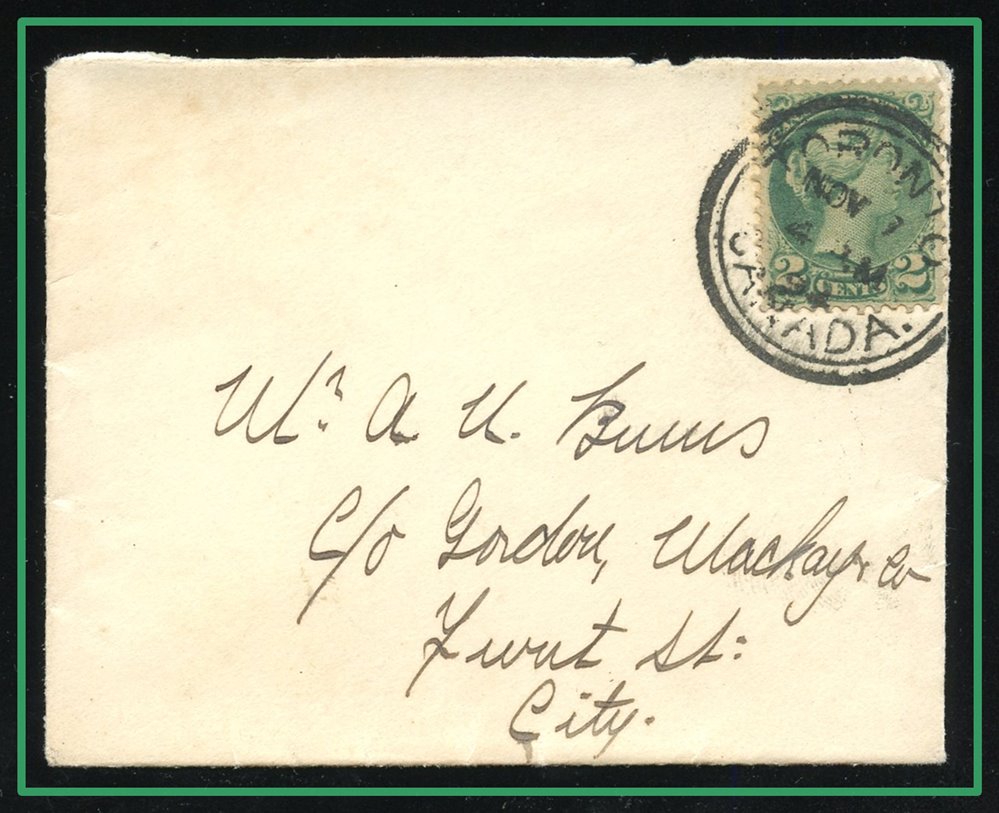 2 2
TORONTO
NOV 7
4
CANADA.
2 CENTS 2
Mr. A. H. Burns
c/o Gordon, Mackay & Co
Front St:
City.